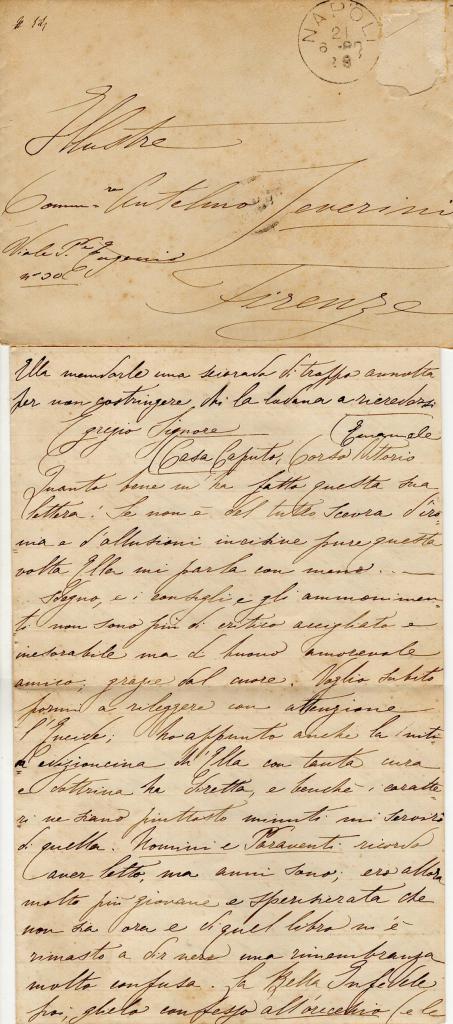 NAPOLI
21
Illustre
Comm.re Antelmo Severini
Viale P.pe Eugenio
n° 30
Firenze
Ella mandarle una di troppo annotta
per non costringere chi la a
Egregio Signore
Emanuele
(Casa Caputo, Corso Vittorio
Quanto bene m'ha fatto questa sua
lettera! Se non è del tutto scevra d'iro-
nia e d'allusioni incisive pure questa
volta Ella mi parla con meno ....
sdegno, e i consigli e gli ammonimen-
ti non sono più di critico accigliato e
inesorabile ma di buono amorevole
amico; grazie dal cuore. Voglio subito
pormi a rileggere con attenzione
l'Eneide; ho appunto anche la
edizioncina ch'Ella con tanta cura
e dottrina ha diretta, e benchè i caratte-
ri ne siano piuttosto minuti mi servirò
di quella. Uomini e Paraventi ricordo
aver letto, ma anni sono; ero allora
molto più giovane e spensierata che
non sia ora e di quel libro m'è
rimasto a dir vero una rimembranza
molto confusa. La Bella Infedele
poi, glielo confesso all'orecchio (e le